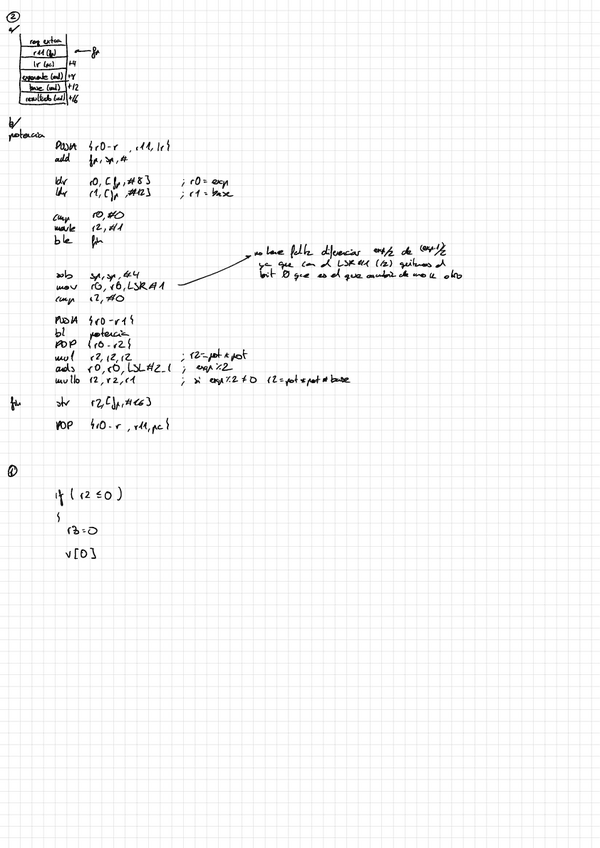 ②
a/
reg extra
r11 (fp) ← fp
lr (pc) +4
exponente (val) +8
base (val) +12
resultado (val) +16
b/
potencia
PUSH {r0-r , r11, lr}
add fp, sp, #
ldr r0, [fp, #8] ; r0 = exp
ldr r1, [fp, #12] ; r1 = base
cmp r0, #0
movle r2, #1
ble fin
no hace falta diferenciar exp/2 de (exp-1)/2
ya que con el LSR #1 (/2) quitamos el
bit 0 que es el que cambia de uno a otro
sub sp, sp, #4
mov r0, r0, LSR #1
cmp r2, #0
PUSH {r0-r1}
bl potencia
POP {r0-r2}
mul r2, r2, r2 ; r2=pot*pot
ands r0, r0, LSL #2_1 ; exp%2
r2, r2, r1 ; si exp%2≠0 r2=pot*pot*base
fin str r2, [fp, #16]
POP {r0-r , r11, pc}
①
if ( r2 ≤ 0 )
{
r3=0
v[0]